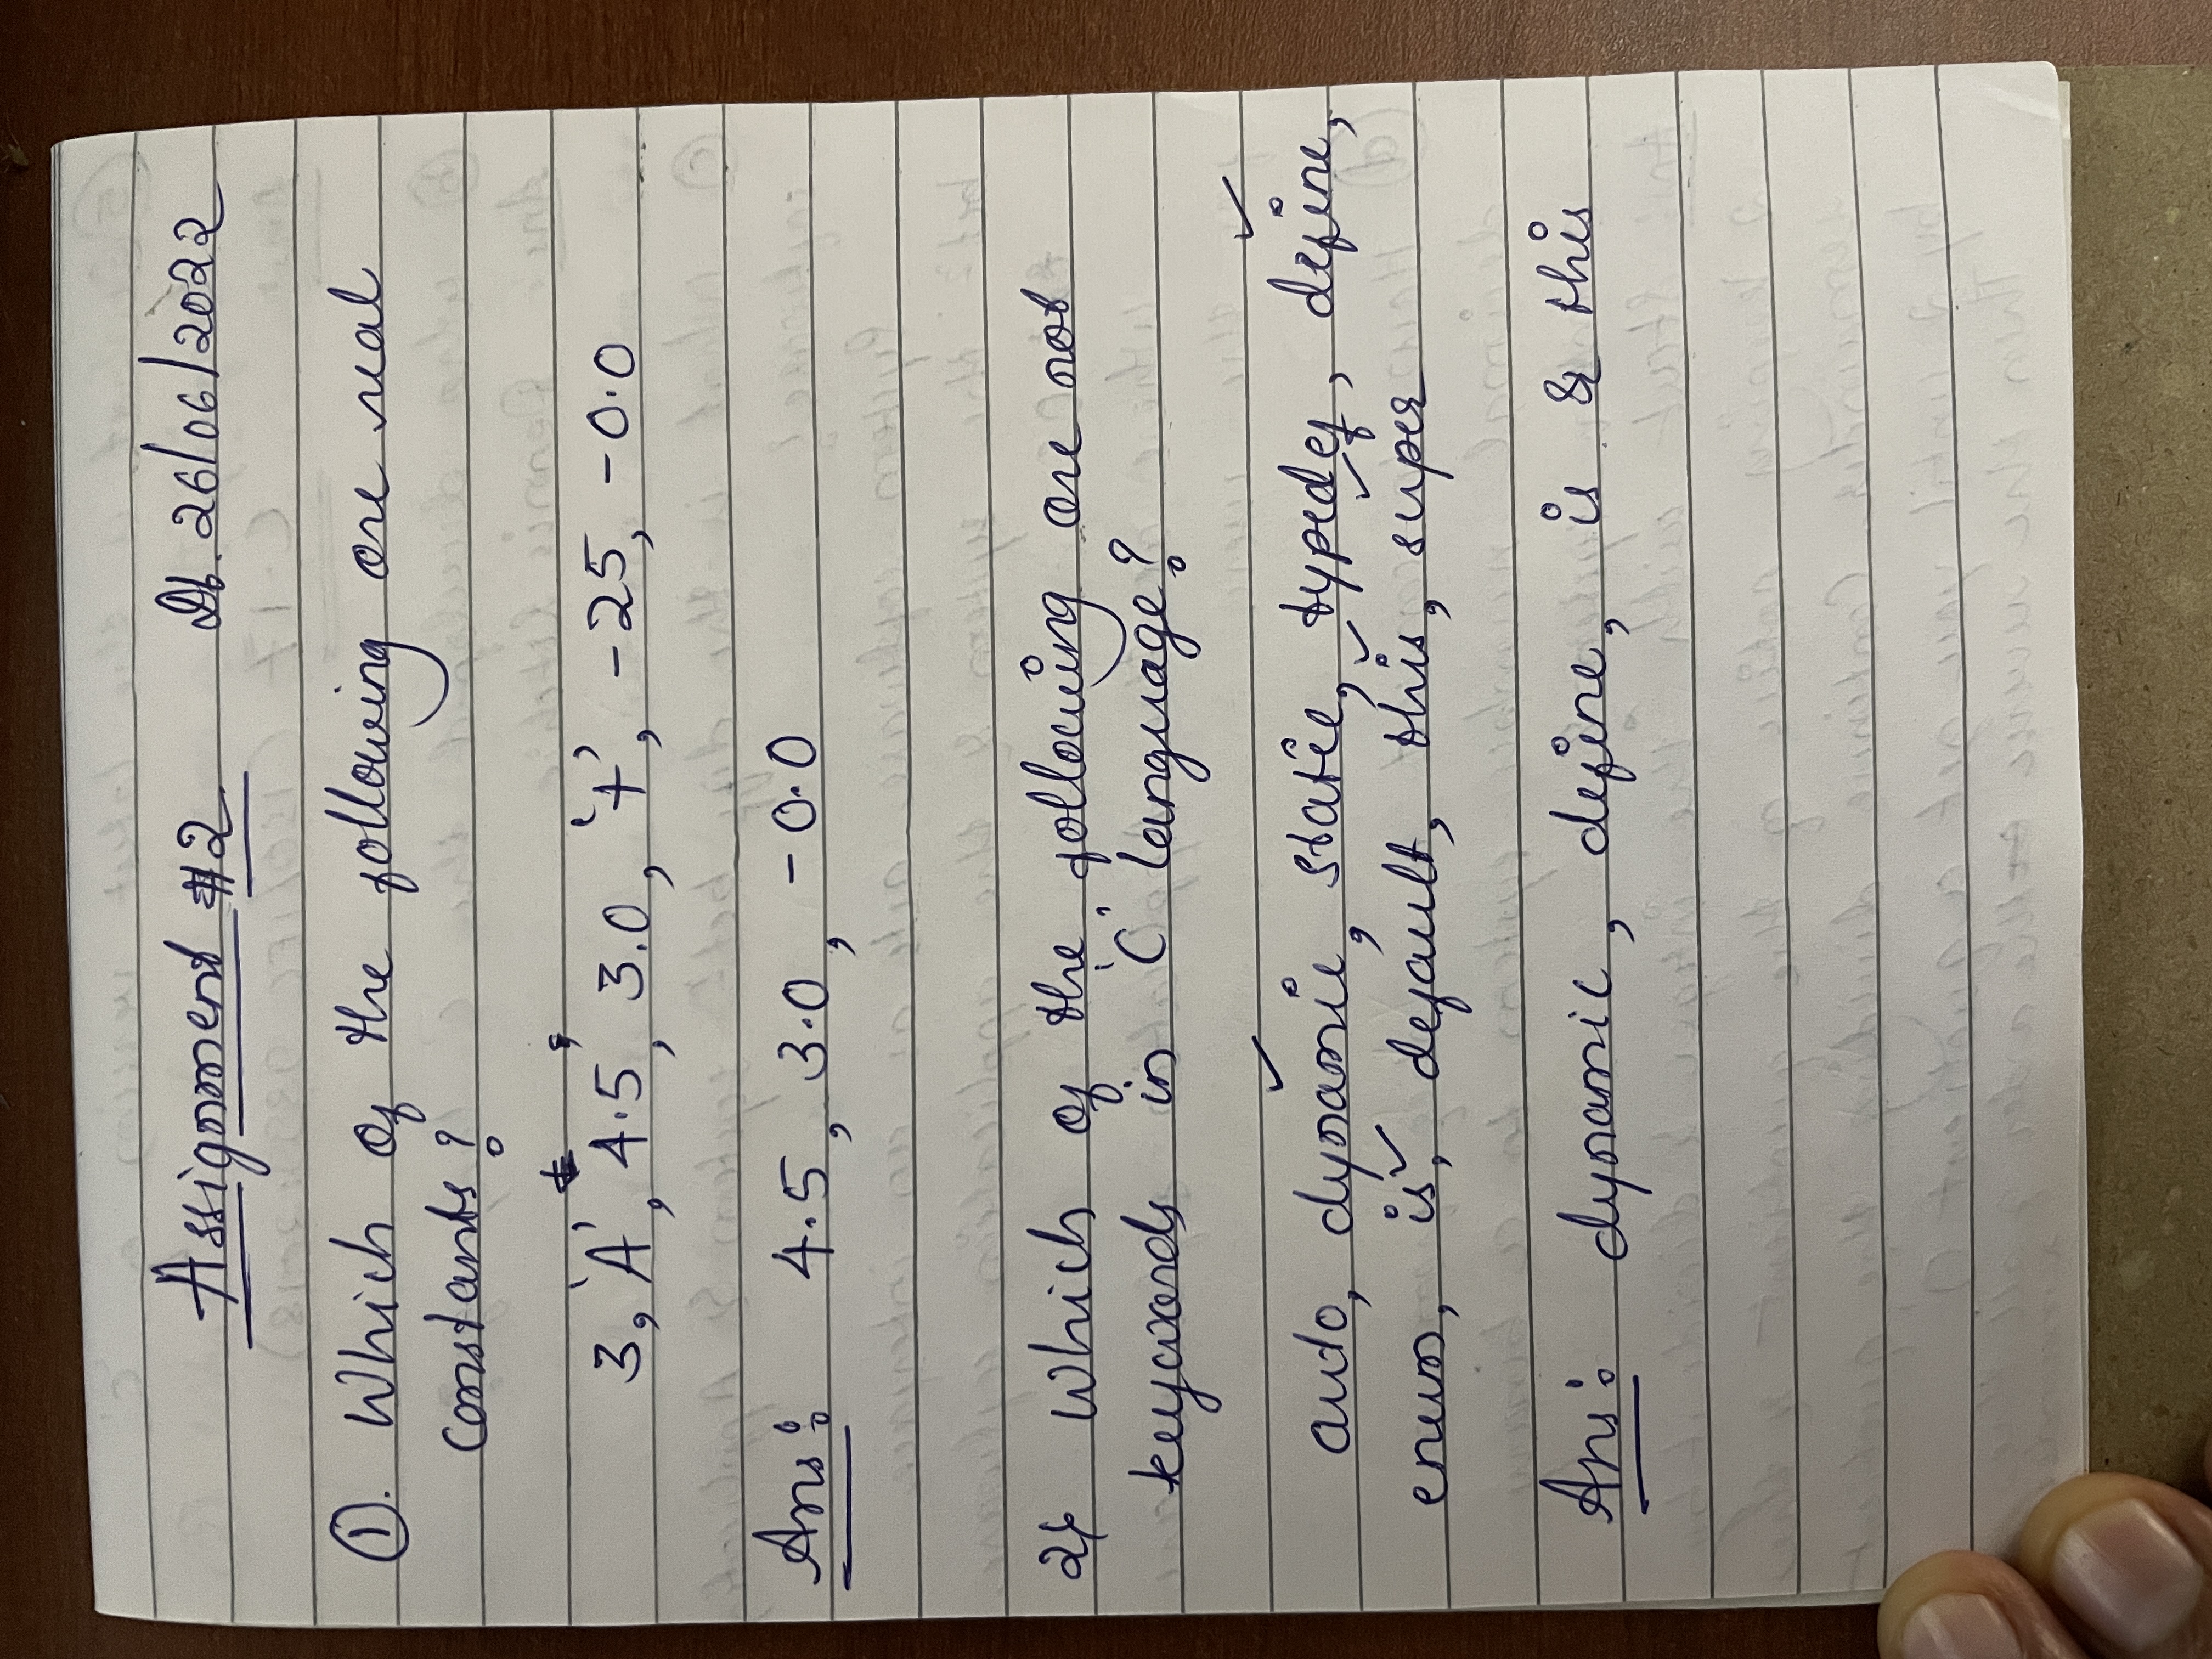 Assignment #2 Dt. 26/06/2022
①. Which of the following are real
constants?
3, 'A', 4.5, 3.0, '+', -25, -0.0
Ans: 4.5, 3.0, -0.0
2) Which of the following are not
keywords in 'C' language?
auto, dynamic, static, typedef, define,
enum, is, default, this, super
Ans: dynamic, define, is & this